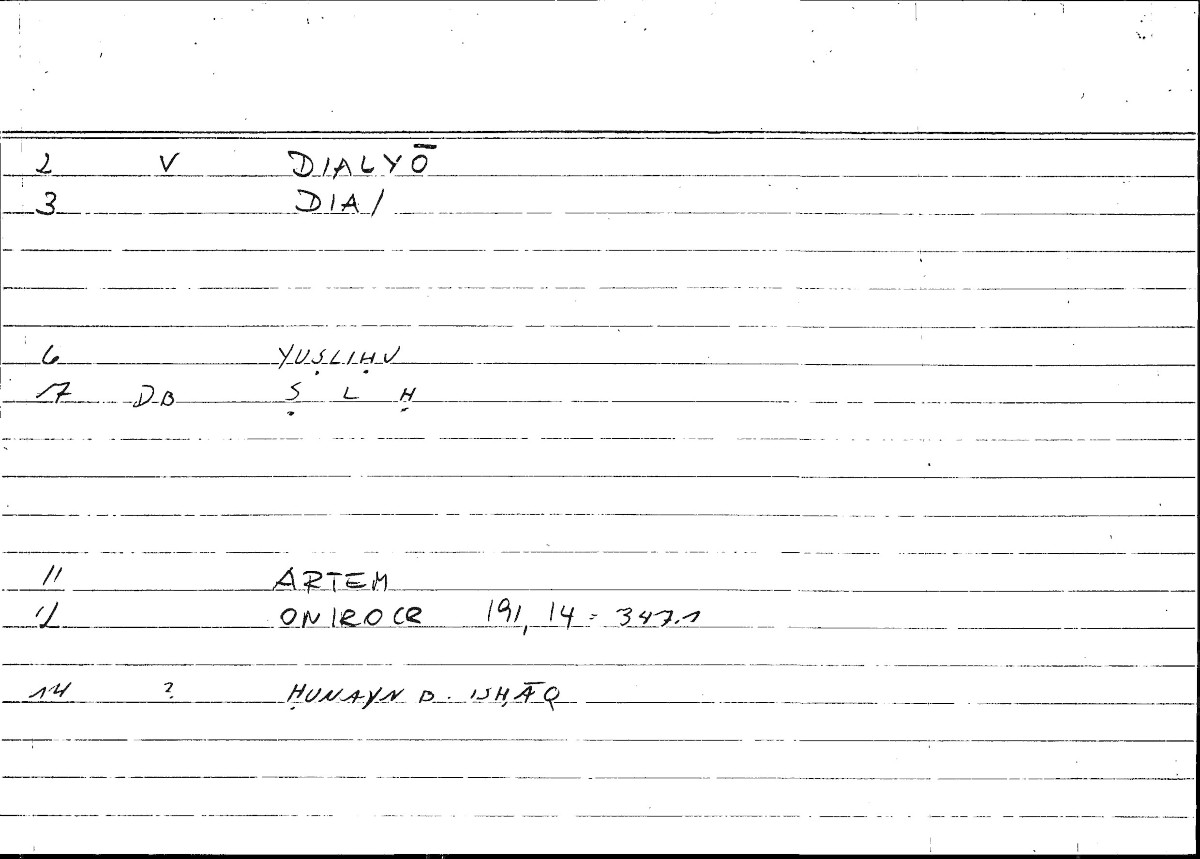 2 V DIALYŌ
3 DIA/
6 YUṢLIḤU
17 DB Ṣ L Ḥ
11 ARTEM
12 ONIROCR 191,14 = 347.1
14 ? ḤUNAYN B. ISḤĀQ